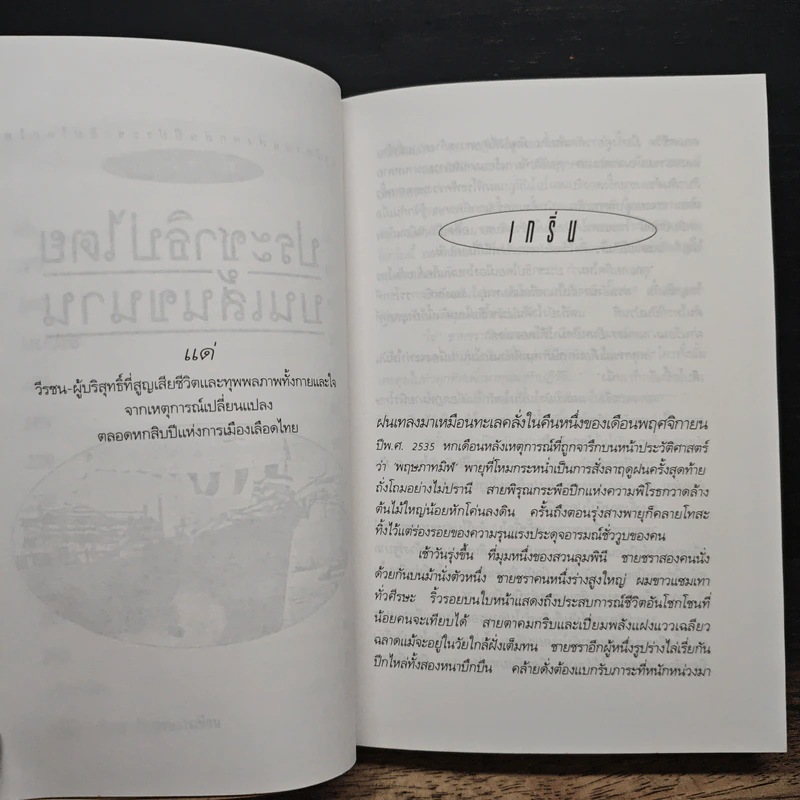 แด่
วีรชน-ผู้บริสุทธิ์ที่สูญเสียชีวิตและทุพพลภาพทั้งกายและใจ
จากเหตุการณ์เปลี่ยนแปลง
ตลอดหกสิบปีแห่งการเมืองเลือดไทย
ประชาธิปไตย
บนเส้นขนาน
เกริ่น
ฝนเทลงมาเหมือนทะเลคลั่งในคืนหนึ่งของเดือนพฤศจิกายน
ปีพ.ศ. 2535 หกเดือนหลังเหตุการณ์ที่ถูกจารึกบนหน้าประวัติศาสตร์
ว่า 'พฤษภาทมิฬ' พายุที่โหมกระหน่ำเป็นการสั่งลาฤดูฝนครั้งสุดท้าย
ถั่งโถมอย่างไม่ปรานี สายพิรุณกระพือปีกแห่งความพิโรธกวาดล้าง
ต้นไม้ใหญ่น้อยหักโค่นลงดิน ครั้นถึงตอนรุ่งสางพายุก็คลายโทสะ
ทิ้งไว้แต่ร่องรอยของความรุนแรงประดุจอารมณ์ชั่ววูบของคน
เช้าวันรุ่งขึ้น ที่มุมหนึ่งของสวนลุมพินี ชายชราสองคนนั่ง
ด้วยกันบนม้านั่งตัวหนึ่ง ชายชราคนหนึ่งร่างสูงใหญ่ ผมขาวแซมเทา
ทั่วศีรษะ ริ้วรอยบนใบหน้าแสดงถึงประสบการณ์ชีวิตอันโชกโชนที่
น้อยคนจะเทียบได้ สายตาคมกริบและเปี่ยมพลังแฝงแววเฉลียว
ฉลาดแม้จะอยู่ในวัยใกล้ฝั่งเต็มทน ชายชราอีกผู้หนึ่งรูปร่างไล่เรี่ยกัน
ปีกไหล่ทั้งสองหนาบึกบึน คล้ายดั่งต้องแบกรับภาระที่หนักหน่วงมา